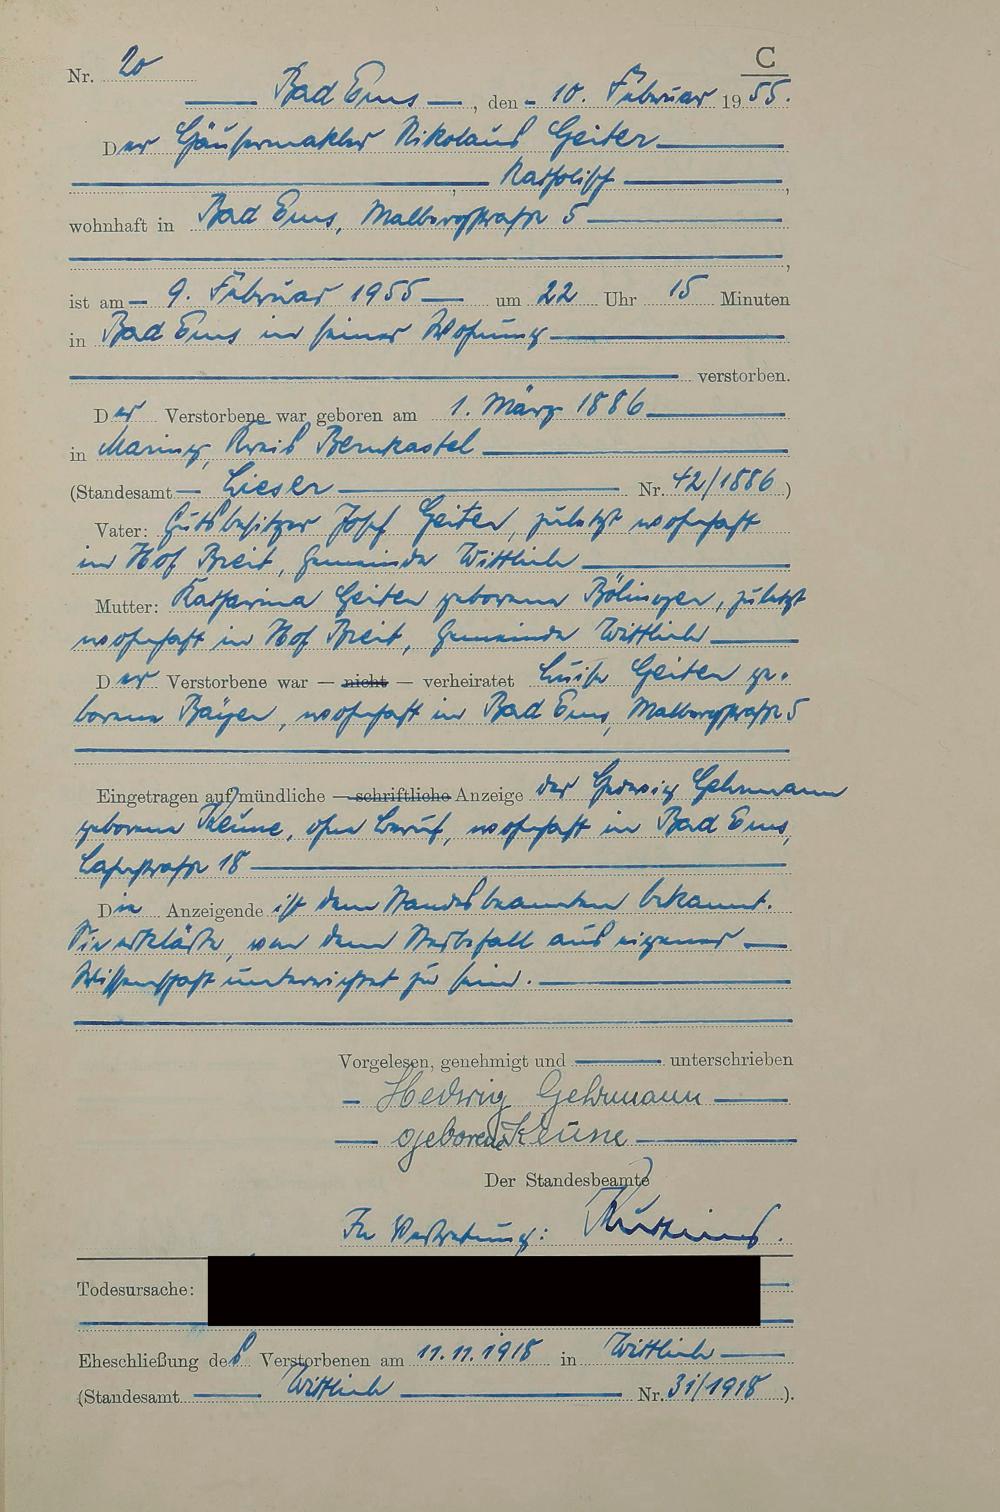 C
Nr. 20
Bad Ems, den 10. Februar 1955.
Der Häusermakler Nikolaus Geiter
Katholisch,
wohnhaft in Bad Ems, Malbergstraße 5
,
ist am 9. Februar 1955 um 22 Uhr 15 Minuten
in Bad Ems in seiner Wohnung
verstorben.
Der Verstorbene war geboren am 1. März 1886
in Maring, Kreis Bernkastel
(Standesamt Lieser Nr. 42/1886)
Vater: Gutsbesitzer Josef Geiter, zuletzt wohnhaft
in Hof Breit, Gemeinde Wittlich
Mutter: Katharina Geiter geborene, zuletzt
wohnhaft in Hof Breit, Gemeinde Wittlich
Der Verstorbene war — nicht — verheiratet Luise Geiter ge-
borene Bayer, wohnhaft in Bad Ems, Malbergstraße 5
Eingetragen auf mündliche — schriftliche Anzeige der Hedwig Gehrmann
geborene Keune, ohne Beruf, wohnhaft in Bad Ems,
Lahnstraße 18
Die Anzeigende ist dem Standesbeamten bekannt.
Sie erklärte, von dem Sterbefall aus eigener
Wissenschaft unterrichtet zu sein.
Vorgelesen, genehmigt und unterschrieben
Hedwig Gehrmann
geborene Keune
Der Standesbeamte
In Vertretung:
Todesursache:
Eheschließung des Verstorbenen am 11.11.1918 in Wittlich
(Standesamt Wittlich Nr. 31/1918).